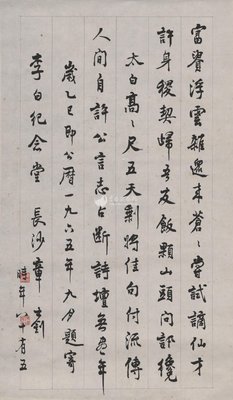 富貴浮雲雜遝來蒼〻嘗試謫仙才
許身稷契歸吾友飯顆山頭問訊纔
太白高〻尺五天剩將佳句付流傳
人間自許公言志占斷詩壇年
歲乙巳即公曆一九六五年九月題寄
李白纪念堂 長沙章士釗
時年八十有五